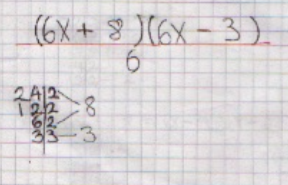 (6x + 8)(6x - 3)
6
24 2
12 2 8
6 2
3 3 3